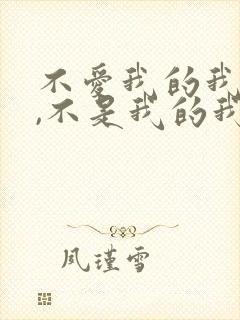 不愛我的我
,不是我的我
風瑾雪